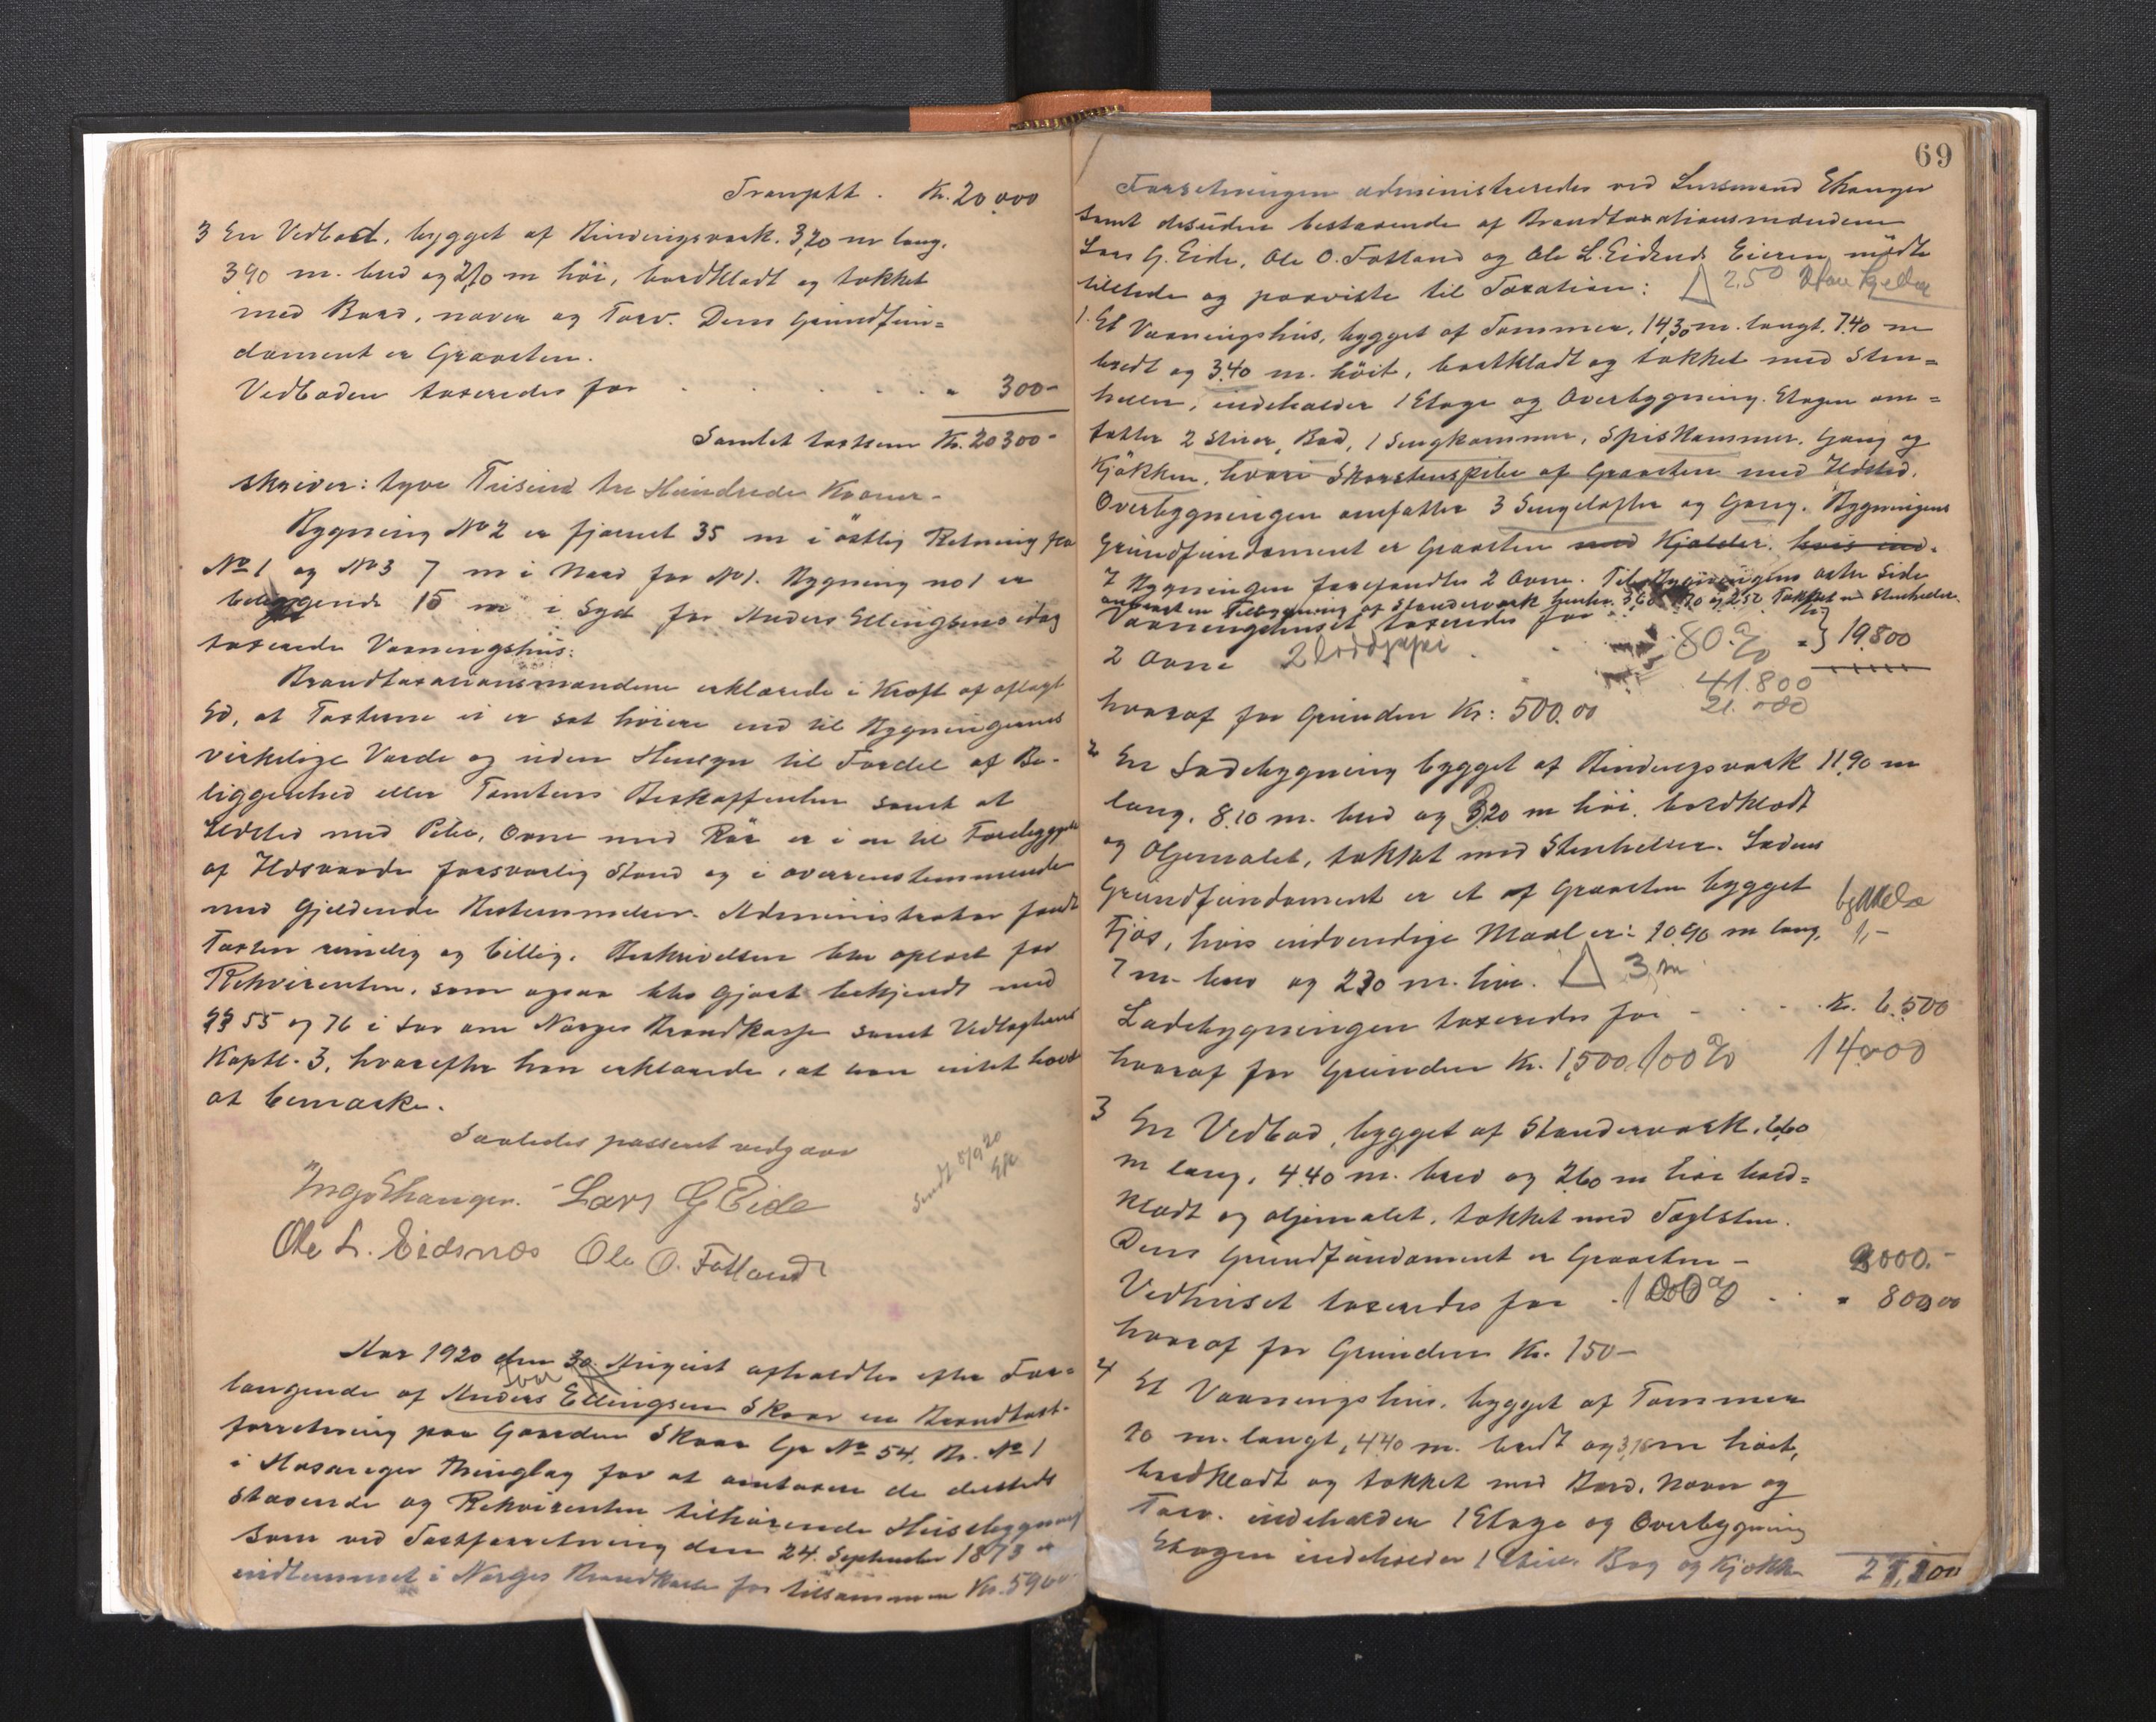 Transpkt . Kr. 20,000
3 En Vedbod, bygget af Bindingsverk. 3,20 m lang,
3.90 m. bred og 2,10 m höi, bordklædt og tækket
med Bord, næver og Torv. Dens Grundfun=
dament er Graasten.
Vedboden taxeredes for . . . . . " 300-
Samlet takstsum Kr. 20300-
skriver: tyve Tusind tre Hundrede Kroner-
Bygning No 2 er fjernet 35 m i östlig Retning fra
No 1 og No 3 7 m i Nord for No 1. Bygning no 1 er
beliggende 15 m i Syd for Anders Ellingsens idag
taxerede Vaaningshus.
Brandtaxationsmændene erklærede i Kraft af aflagt
Ed, at Taxterne ei er sat höiere end til Bygningernes
virkelige Værde og uden Hensyn til Fordel af Be-
liggenhed eller Tomtens Beskaffenhed samt at
Ildsted med Pibe, Ovne med Rör er i en til Forebyggelse
af Ildsvaade forsvarlig Stand og i overensstemmende
med Gjeldende Bestemmelser. Administrator fandt
Taxten rimelig og billig. Beskrivelsen blev oplæst for
Rekvirenten, som ogsaa blev gjort bekjendt med
§§ 55 og 76 i Lov om Norges Brandkasse samt Vedtægtens
Kaptl. 3, hvorefter han erklærede, at han intet havde
at bemærke.
Saaledes passeret vedgaar
Inge Ekanger. Lars G Eide
Ole L. Eidsnes Ole O. Fotland
Sendt 8/9 20
Aar 1920 den 30. August afholdtes efter For=
langende af Anders Ellingsen Skaar en Brandtaxt-
forretning paa Gaarden Skaar Gr No 54, Br. No 1
i Mosanger Thinglag for at omtaxere de dersteds
staaende og Rekvirenten tilhörende Husebygninger
som ved Taxtforretning den 24. September 1873 er
indlemmet i Norges Brandkasse for tilsammen Kr. 5960
69
Forretningen administreredes ved Lensmand Ekanger
samt desuden bestaaende af Brandtaxationsmændene
Lars G. Eide, Ole O. Fotland og Ole L. Eidsnes Eieren mödte
tilstede og paaviste til Taxation: 2,50 kjelder
1. Et Vaaningshus, bygget af Tømmer, 14,30 m. langt. 7.40 m
bredt og 3.40 m. höit, bordklædt og tækket med Sten=
heller, indeholder 1 Etage og Overbygning. Etagen om=
fatter 2 Stuer, Bod, 1 Sengkammer, Spiskammer, Gang og
Kjökken, hvori Skorstenspibe af Graasten med Ildsted.
Overbygningen omfatter 3 Sengelofter og Gang. Bygningens
Grundfundament er Graasten med Kjælder. hvis ind-
I Bygningen forefandtes 2 Ovne. Til Bygningens østre Side
Tilbygning af Standerverk 2,50 Tækket m Stenheller.
Vaaningshuset taxeredes for
2 Ovne 80 % " } 19,800
41.800
21.000
hvoraf for Grunden Kr: 500.00
2 En Ladebygning bygget af Bindingsverk 11,90 m
lang, 8.10 m. bred og 3,20 m höi. bordklædt
og Oljemalet, tækket med Stenheller. Ladens
Grundfundament er et af Graasten bygget
Fjøs, hvis indvendige Maal er: 10.90 m lang,
7 m- bred og 2.30 m. höi. 3 m
Ladebygningen taxeredes for - . . Kr. 6,500
hvoraf for Grunden Kr. 1,500 100 % 14000
3 En Vedbod, bygget af Standerverk, 6,60
m lang, 4.40 m. bred og 2,60 m höi bord=
klædt og oljemalet, tækket med Taglsten.
Dens Grundfundament er Graasten - 2000.-
Vedhuset taxeredes for . 100 % . . " 800,00
hvoraf for Grunden Kr. 150-
4 Et Vaaningshus, bygget af Tømmer
10 m. langt, 4,40 m. bredt og m höit,
bordklædt og tækket med Bord, Næver og
Torv. indeholder 1 Etage og Overbygning
Etagen indeholder 1 Stue, Bod og Kjøkken